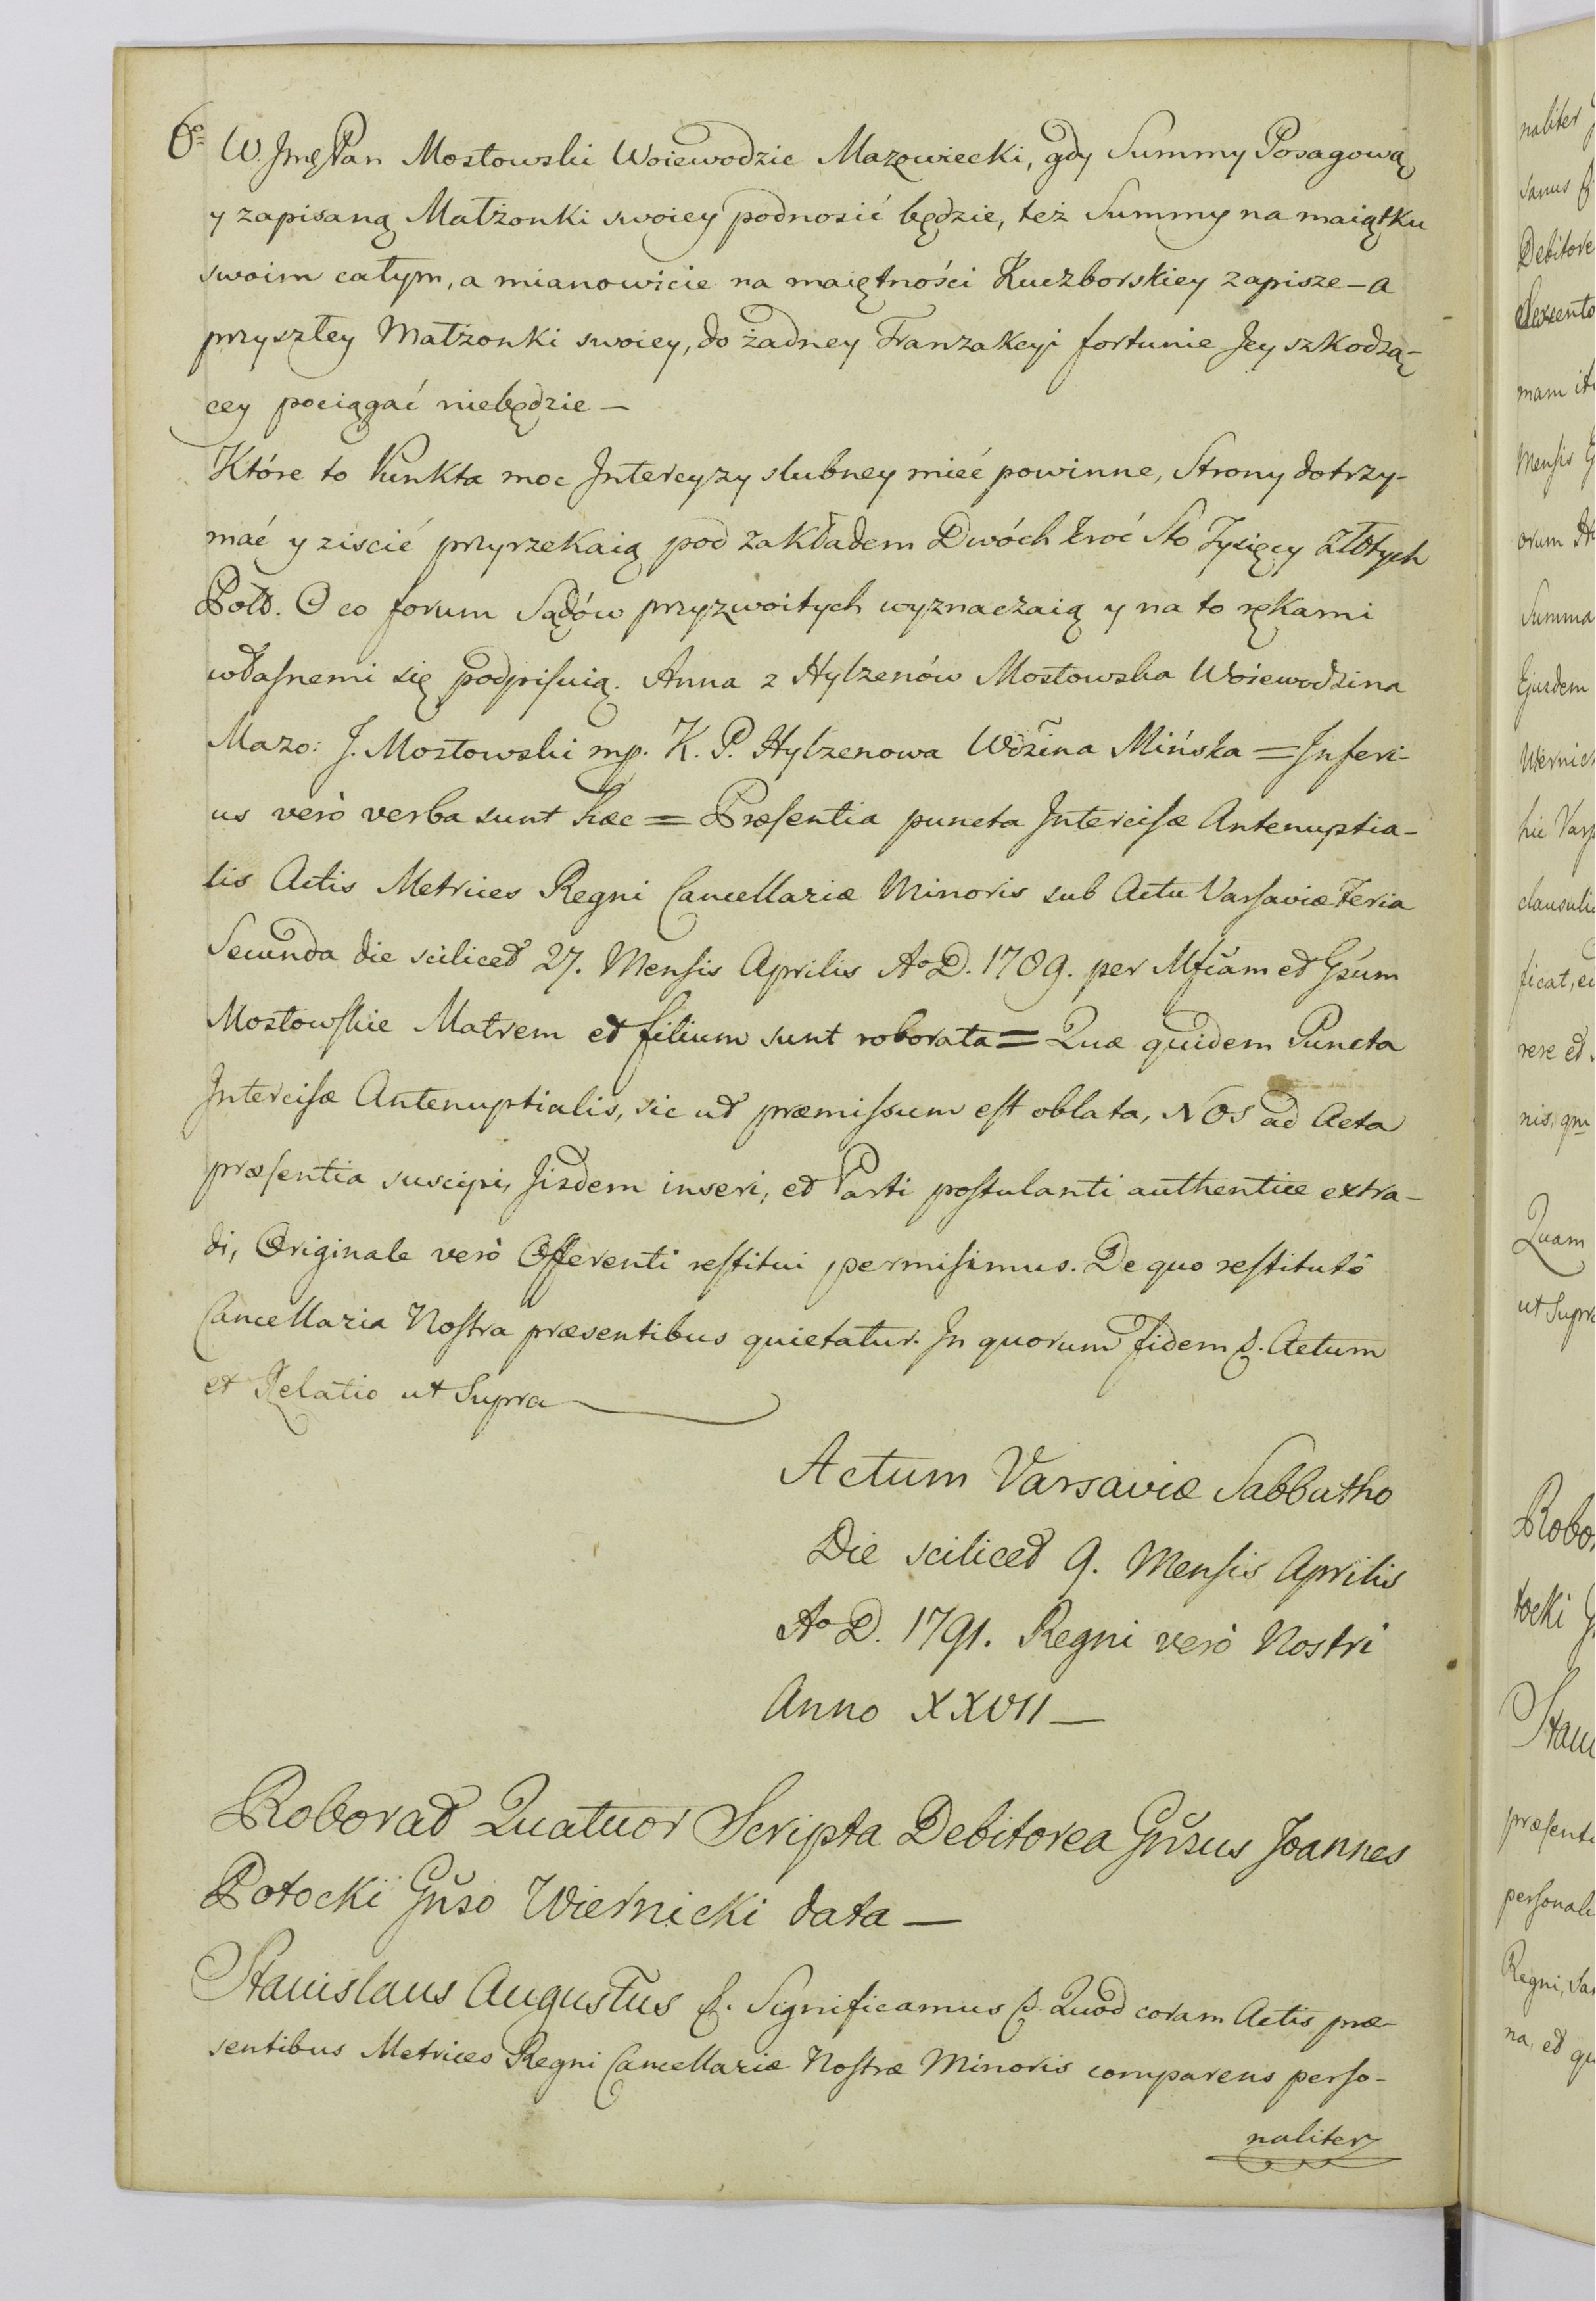 6o W. Jmę Pan Mostowski Woiewodzic Mazowiecki, gdy Summy Posagową
y zapisaną Małżonki swoiey podnosić będzie, też Summy na maiątku
swoim całym, a mianowicie na maiętności Kuczborskiey zapisze – a
przyszłey Małżonki swoiey, do żadney Tranzakcyi fortunie Jey szkodzą-
cey pociągać niebędzie –
Które to Punkta moc Intercyzy slubney mieć powinne, Strony dotrzy-
mać y ziscić przyrzekaią pod zakładem Dwóch kroć Sto Tysięcy Złotych
Pols. O co forum Sądów przyzwoitych wyznaczaią y na to rękami
własnemi się podpisuią. Anna z Hylzenów Mostowska Woiewodzina
Mazo: J. Mostowski mp. K. P. Hylzenowa Wdzina Mińska = Inferi-
us verò verba sunt hæc = Præsentia puncta Intercisæ Antenuptia-
lis Actis Metrices Regni Cancellariæ Minoris sub Actu Varsaviæ Feria
Secunda die scilicet 27. Mensis Aprilis Ao D. 1789. per Mficam et Gsum
Mostowskie Matrem et filium sunt roborata = Quæ quidem Puncta
Intercisæ Antenuptialis, sic ut præmissum est oblata, NOS ad Acta
præsentia suscipi, Jisdem inseri, et Parti postulanti authentice extra-
di, Originale verò Offerenti restitui permisimus. De quo restitutô
Cancellaria Nostra præsentibus quietatur. In quorum fidem &. Actum
et Relatio ut Supra
Actum Varsaviæ Sabbatho
Die scilicet 9. Mensis Aprilis
Ao D. 1791. Regni verò Nostri
Anno XXVII –
Roborat Quatuor Scripta Debitorea Gnsus Joannes
Potocki Gnso Wiernicki data –
Stanislaus Augustus &. Significamus &. Quod coram Actis præ-
sentibus Metrices Regni Cancellariæ Nostræ Minoris comparens perso-
naliter